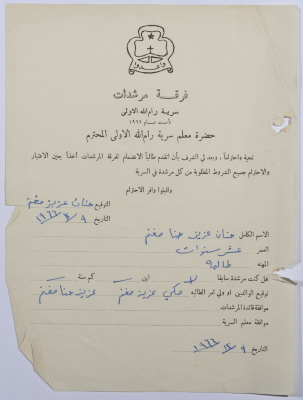 فرقة مرشدات
سرية رام الله الاولى
حضرة معلم سرية رام الله الاولى المحترم
تحية واحتراما ، وبعد لي الشرف بأن اتقدم طالباً الانضمام لفرقة المرشدات آخذاً بعين الاعتبار
والاحترام جميع الشروط المطلوبة من كل مرشدة في السرية
واقبلوا وافر الاحترام
التوقيع حنان عزيز مغنم
التاريخ ٩ / ٢ / ١٩٦٦
الاسم الكامل حنان عزيز حنا مغنم
العمر عشر سنوات
المهنه طالبة
هل كنت مرشدة سابقا لا اين كم سنة
توقيع الوالدين او ولي امر الطالبه عزيز مغنم عزيز حنا مغنم
موافقة قائدة المرشدات
موافقة معلم السرية
التاريخ ٩ / ٢ / ١٩٦٦